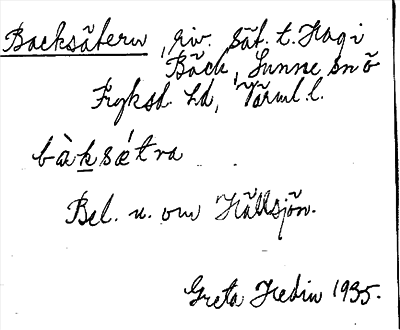 Backsätern, riv. sät. t. Hag i
Bäck, Sunne sn ö
Fryksd. hd, Värml. l.
bàksétra
Bel. n. om Hällsjön.
Greta Hedin 1935.